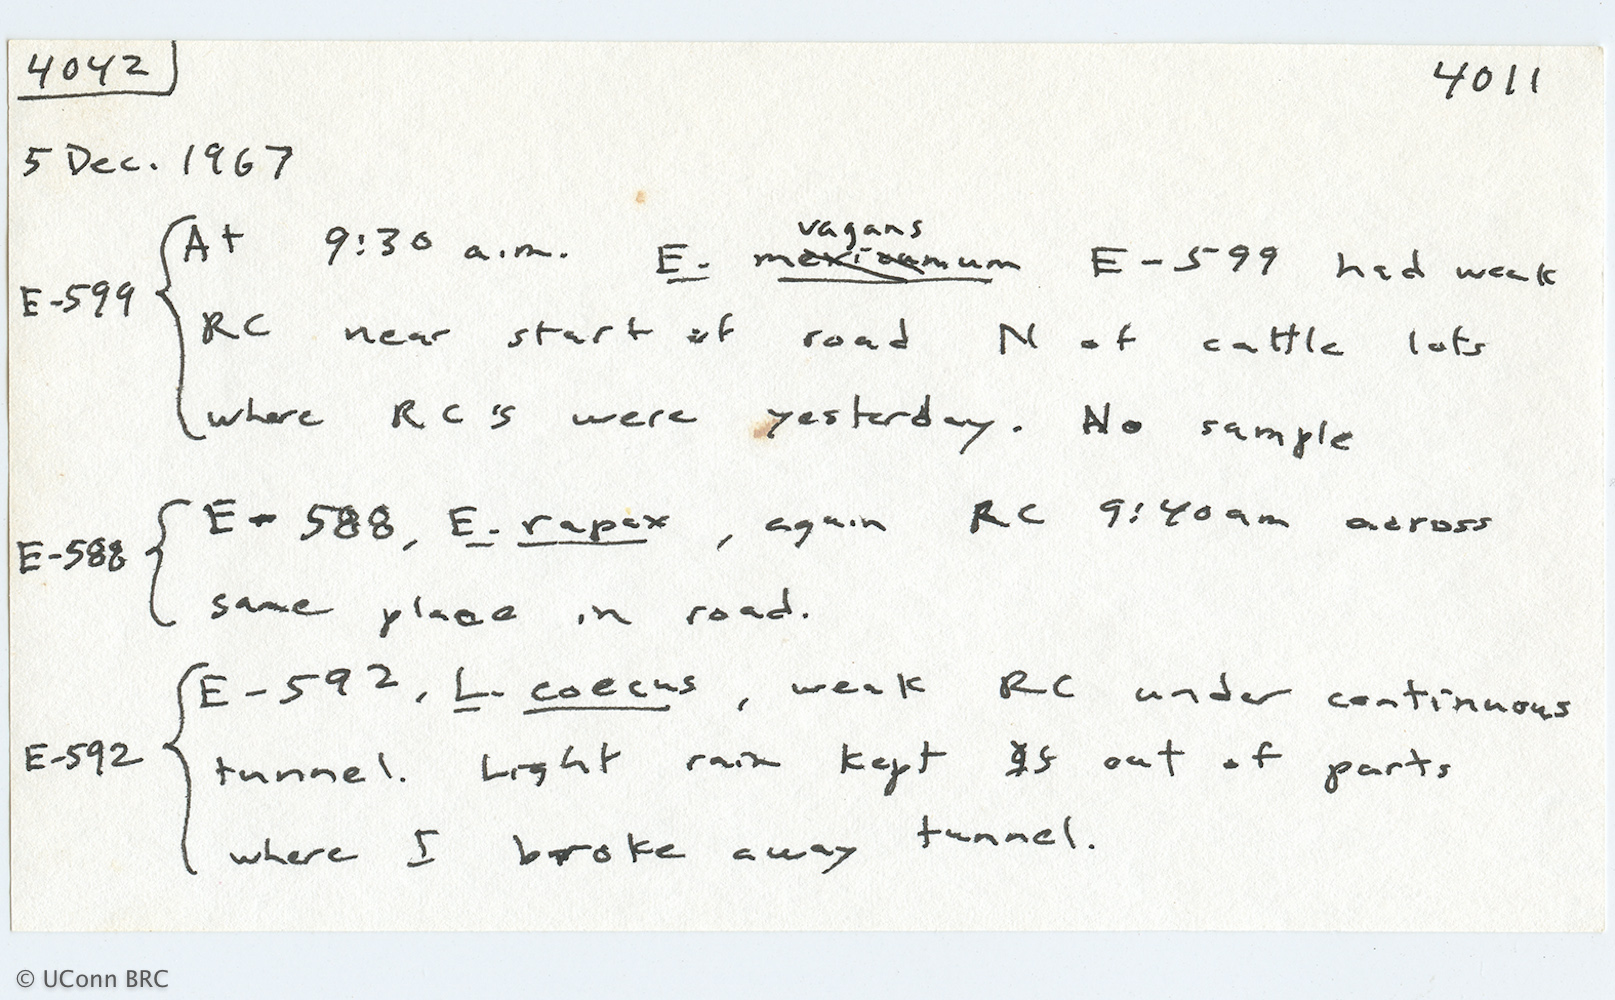 4042 4011
5 Dec. 1967
vagans
E-599 At 9:30 a.m. E. meximamum E-599 had weak
RC near start of road N of cattle lots
where RC's were yesterday. No sample
E-588 E-588, E. rapax, again RC 9:40am across
same place in road.
E-592 E-592, L. coecus, weak RC under continuous
tunnel. Light rain kept out of parts
where I broke away tunnel.
© UConn BRC